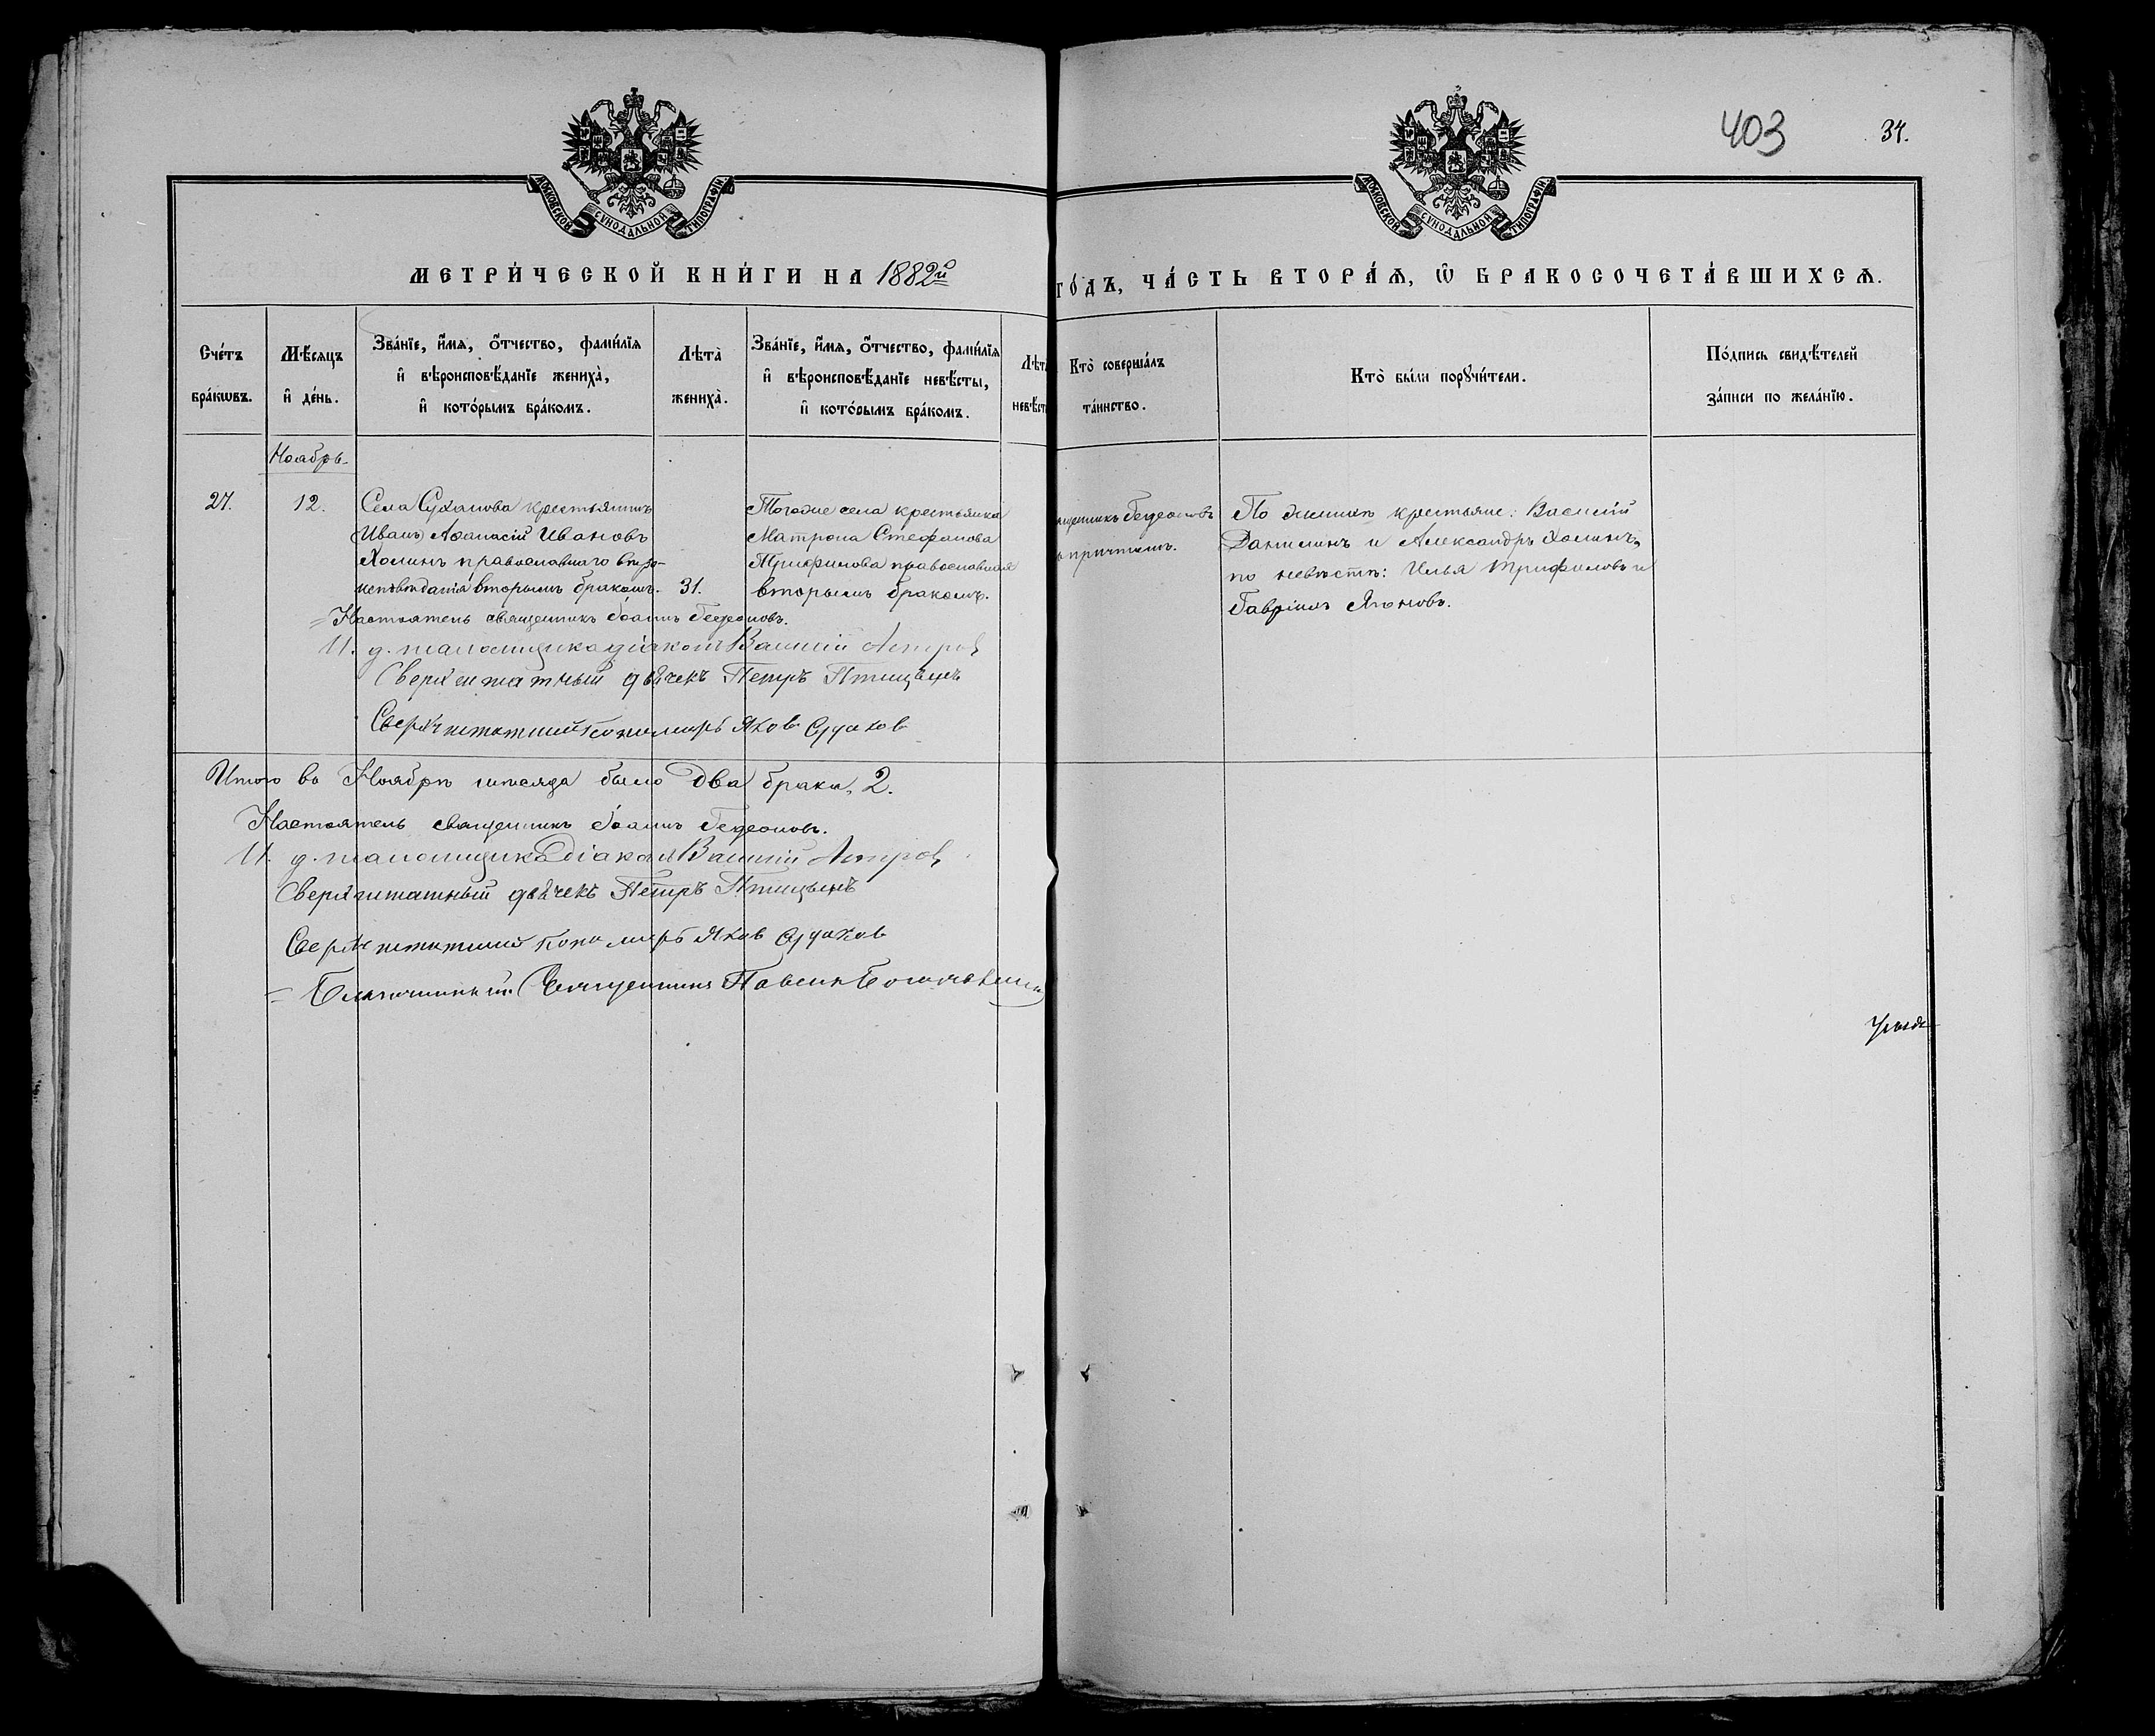 МОСКОВСКОЙ СУНОДАЛЬНОЙ ТИПОГРАФІИ.
МОСКОВСКОЙ СУНОДАЛЬНОЙ ТИПОГРАФІИ.
403
34.
МЕТРИ́ЧЕСКОЙ КНИ́ГИ НА 1882й
ГО́ДЪ, ЧА́СТЬ ВТОРА́Ѧ, Ѿ БРАКОСОЧЕТА́ВШИХСѦ.
Сче́тъ
бра́кѡвъ.
Мѣ́сяцъ
и҆ де́нь.
Зва́нїе, и҆́мѧ, ѻ҆́тчество, фами́лїѧ
и҆ вѣроисповѣ́данїе жениха̀,
и҆ кото́рымъ бра́комъ.
Лѣта̀
жениха̀.
Зва́нїе, и҆́мѧ, ѻ҆́тчество, фами́лїѧ
и҆ вѣроисповѣ́данїе невѣ́сты,
и҆ кото́рымъ бра́комъ.
Лѣта
невѣст
Кто̀ соверша́лъ
та́инство.
Кто̀ бы́ли порꙋчи́тели.
По́дпись свидѣ́телей
за́писи по жела́нїю.
Ноябрь.
27.
12.
Села Суханова крестьянинъ
Иванъ Аѳанасій Ивановъ
Холинъ православнаго вѣро-
исповѣданія вторымъ бракомъ.
31.
Тогоже села крестьянка
Матрона Стефанова
Трифилова православная
вторымъ бракомъ.
Гедеоновъ
причтомъ.
По женихѣ крестьяне: Василій
Данилинъ и Александръ Холинъ,
по невѣстѣ: Илья Трифиловъ и
Гавріилъ
Настоятель священникъ Іоаннъ Гедеоновъ.
И. д. псаломщика діаконъ Василій
Сверхштатный дьячекъ Петръ Птицынъ
Сверхштатный пономарь Яков
Итого въ Ноябрѣ мѣсяцѣ было два брака. 2.
Настоятель священникъ Іоаннъ Гедеоновъ.
И. д. псаломщика діаконъ Василій
Сверхштатный дьячекъ Петръ Птицынъ
Сверхштатный пономарь Яков
Благочинный Священникъ Павелъ